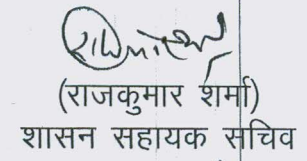 (राजकुमार शर्मा)
शासन सहायक सचिव